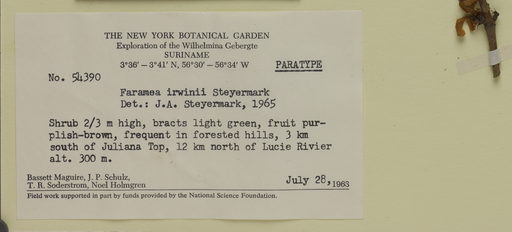 THE NEW YORK BOTANICAL GARDEN
Exploration of the Wilhelmina Gebergte
SURINAME
3°36' – 3°41' N, 56°30' – 56°34' W
PARATYPE
No. 54390
Faramea irwinii Steyermark
Det.: J.A. Steyermark, 1965
Shrub 2/3 m high, bracts light green, fruit pur-
plish-brown, frequent in forested hills, 3 km
south of Juliana Top, 12 km north of Lucie Rivier
alt. 300 m.
Bassett Maguire, J. P. Schulz,
T. R. Soderstrom, Noel Holmgren
July 28, 1963
Field work supported in part by funds provided by the National Science Foundation.